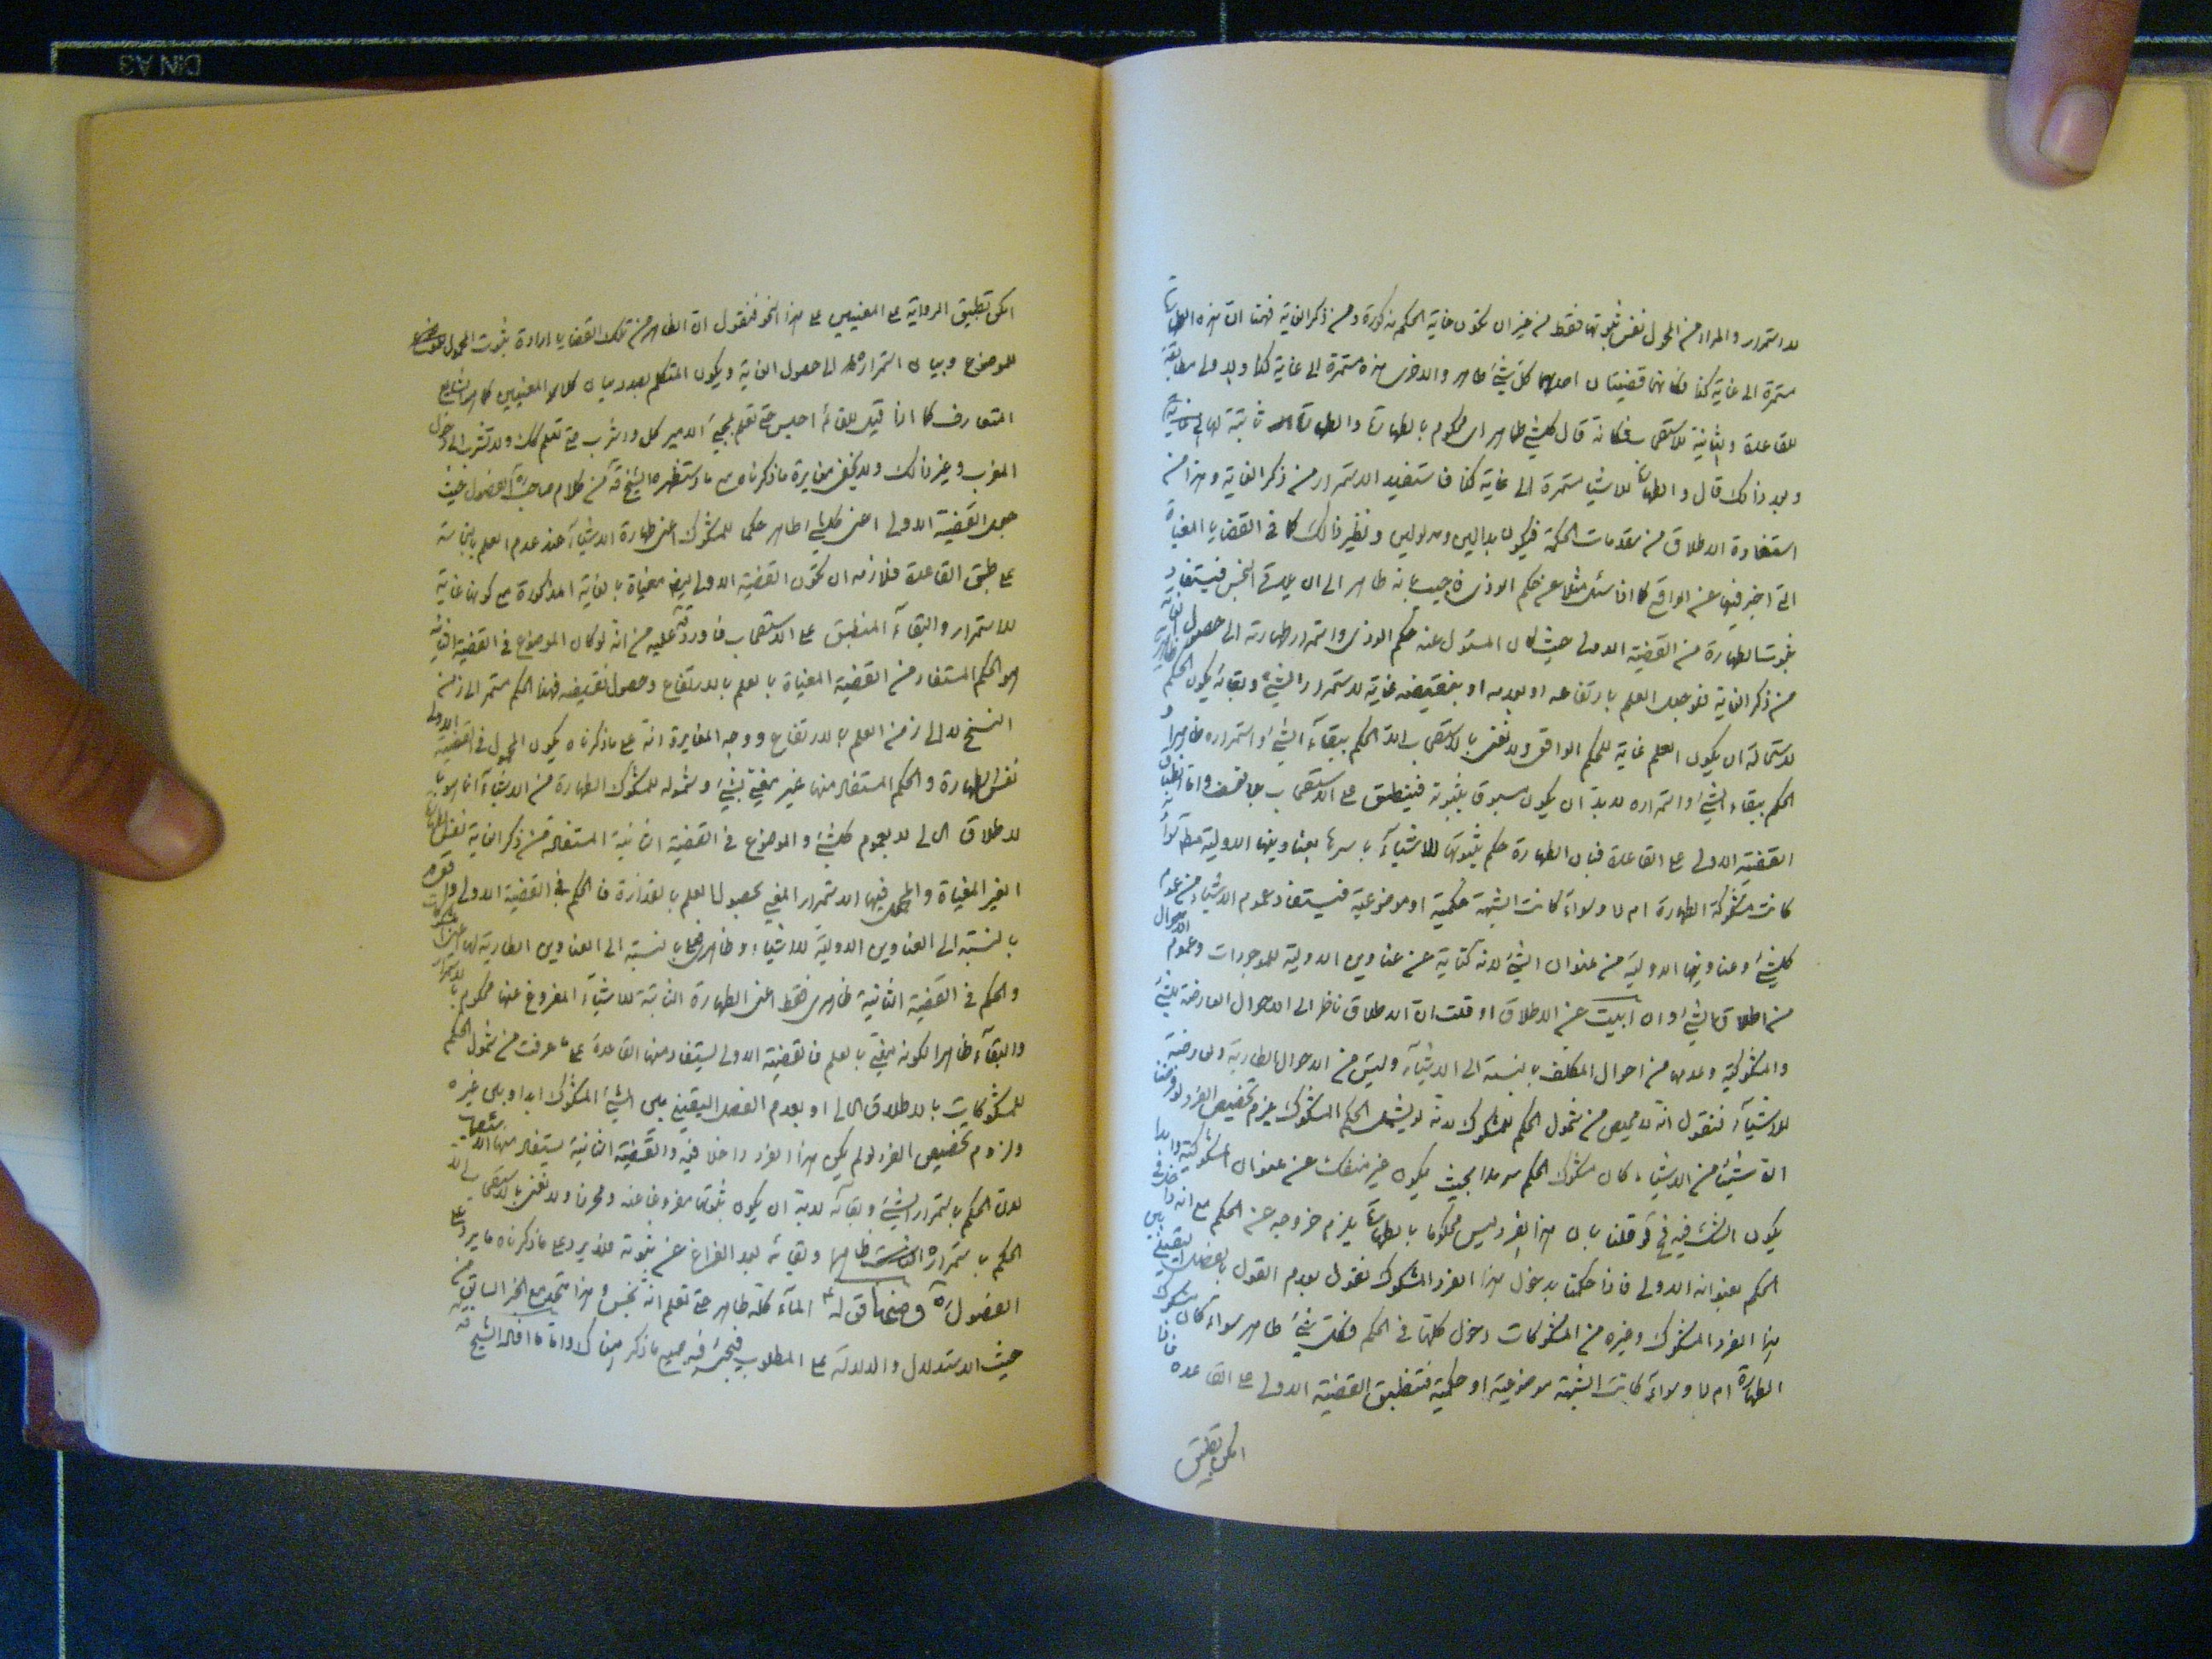 للاستمرار والمراد من المحمول نفس ثبوتها فقط من غير ان تكون غاية الحكم مذكورة ومن ذكر الغاية فهمنا ان هذه الطهارة
مستمرة الى غاية كذا فكانها قضيتان احدهما كل شئ طاهر والاخرى هذه مستمرة الى غاية كذا والاولى مطابقة
للقاعدة والثانية للاستصحاب فكانه قال كل شئ طاهر اى محكوم بالطهارة والطهارة ثابتة لها
وبعد ذالك قال والطهارة للاشياء مستمرة الى غاية كذا فاستفيد الاستمرار من ذكر الغاية وهذا من
استفادة الاطلاق من مقدمات الحكمة فيكون بدالين ومدلولين ونظير ذالك كما فى القضايا المغياة
التى اخبر فيها عن الواقع كما اذا سئل مثلا عن حكم الوذى فاجيب بانه طاهر الى ان يلاقى النجس فيستفاد
ثبوت الطهارة من القضية الاولى حيث كان المسئول عنه حكم الوذى واستمرار طهارته الى حصول الغاية
من ذكر الغاية فلو جعل العلم بارتفاعه او بعدمه او بنقيضه غاية لاستمرار الشئ وبقائه يكون الحكم ظاهريا
لاستحالة ان يكون العلم غاية للحكم الواقعى ولا نعنى بالاستصحاب الا الحكم ببقاء الشئ واستمراره ظاهرا و
الحكم ببقاء الشئ واستمراره لابد ان يكون مسبوق بثبوته فينطبق على الاستصحاب بلا تعسف واما انطباق
القضية الاولى على القاعدة فبان الطهارة حكم بثبوتها للاشياء باسرها بعناوينها الاولية مطلقا سواء
كانت مشكوكة الطهارة ام لا وسواء كانت الشبهة حكمية او موضوعية فيستفاد عموم الاشياء من عموم
كل شئ وعناوينها الاولية من عنوان الشئ لانه كناية عن عناوين الاولية للموجودات وعموم الاحوال
من اطلاق الشئ وان ابيت عن الاطلاق او قلت ان الاطلاق ناظر الى الاحوال العارضة للشئ
والمشكوكية وعدمها من احوال المكلف بالنسبة الى الاشياء وليس من الاحوال الطارية والعارضة
للاشياء فنقول انه لا محيص من شمول الحكم للمشكوك لانه لو لم يشمل الحكم المشكوك يلزم تخصيص الفرد لو فرضنا
ان شيئا من الاشياء كان مشكوك الحكم سرمدا بحيث يكون غير منفك عن عنوان المشكوكية دائما
يكون الشك فيه فح لو قلنا بان هذا الفرد ليس محكوما بالطهارة يلزم خروجه عن الحكم مع انه داخل فى
الحكم بعنوانه الاولى فاذا حكمنا بدخول هذا الفرد المشكوك نقول بعدم القول بالفصل اليقينى بين
هذا الفرد المشكوك وغيره من المشكوكات دخول كلها فى الحكم فكل شئ طاهر سواء كان مشكوك
الطهارة ام لا وسواء كانت الشبهة موضوعية او حكمية فتنطبق القضية الاولى على القاعدة فاذا
امكن تطبيق
امكن تطبيق الرواية على المعنيين على هذا النحو فنقول ان الظاهر من تلك القضايا ارادة ثبوت المحمول
للموضوع وبيان استمراره الى حصول الغاية ويكون المتكلم بصدد بيان كلا المعنيين كما هو شايع
المتعارف كما اذا قيل للغائب اجلس حتى تعلم بمجئ الامير كل واشرب حتى تعلم كذا ولا تشرب الى دخول
المغرب وغير ذالك ولا يخفى مغايرة ما ذكرناه مع ما استظهره الشيخ قده من كلام صاحب الفصول حيث
جعل القضية الاولى اعنى كل شئ طاهر حكما للمشكوك اعنى طهارة الاشياء عند عدم العلم بالنجاسة
على طبق القاعدة فلازمه ان تكون القضية الاولى ايضا مغياة بالغاية المذكورة مع كونها غاية
للاستمرار والبقاء المنطبق على الاستصحاب فاورد عليه من انه لو كان الموضوع فى القضية الثانية
هو الحكم المستفاد من القضية المغياة بالعلم بالارتفاع وحصول نقيضه فهذا الحكم مستمر الى زمن
النسخ لا الى زمن العلم بالارتفاع ووجه المغايرة انه على ما ذكرناه يكون المحمول فى القضية الاولى
نفس الطهارة والحكم المستفاد منها غير مغيى بشئ وشموله للمشكوك الطهارة من الاشياء انما هو با
لاطلاق الحالى لا بعموم كل شئ والموضوع فى القضية الثانية المستفادة من ذكر الغاية نفس الطهارة
الغير المغياة والحكم فيها الاستمرار المغيى بحصول العلم بالقذارة فالحكم فى القضية الاولى واقعى
بالنسبة الى العناوين الاولية للاشياء وظاهرى بالنسبة الى العناوين الطارية لها
والحكم فى القضية الثانية ظاهرى فقط اعنى الطهارة الثابتة للاشياء المفروغ عنها محكوم بالاستمرار
والبقاء ظاهرا لكونه مغيى بالعلم فالقضية الاولى يستفاد منها القاعدة على ما عرفت من شمول الحكم
للمشكوكات بالاطلاق الحالى او بعدم الفصل اليقينى بين الشئ المشكوك ابدا وبين غيره
ولزوم تخصيص الفرد لو لم يكن هذا الفرد داخلا فيه والقضية الثانية يستفاد منها الاستصحاب
لان الحكم باستمرار الشئ وبقائه لابد ان يكون ثبوته مفروغا عنه ومحرزا ولا نعنى بالاستصحاب الا
الحكم باستمراره ظاهرا وبقائه بعد الفراغ عن ثبوته فلا يرد على ما ذكرناه ما يرد على
الفصول ره ومنها قوله ع الماء كله طاهر حتى تعلم انه نجس وهذا متحد مع الخبر السابق من
حيث الاستدلال والدلالة على المطلوب فيجئ فيه جميع ما ذكر هناك واما ما افاد الشيخ قده